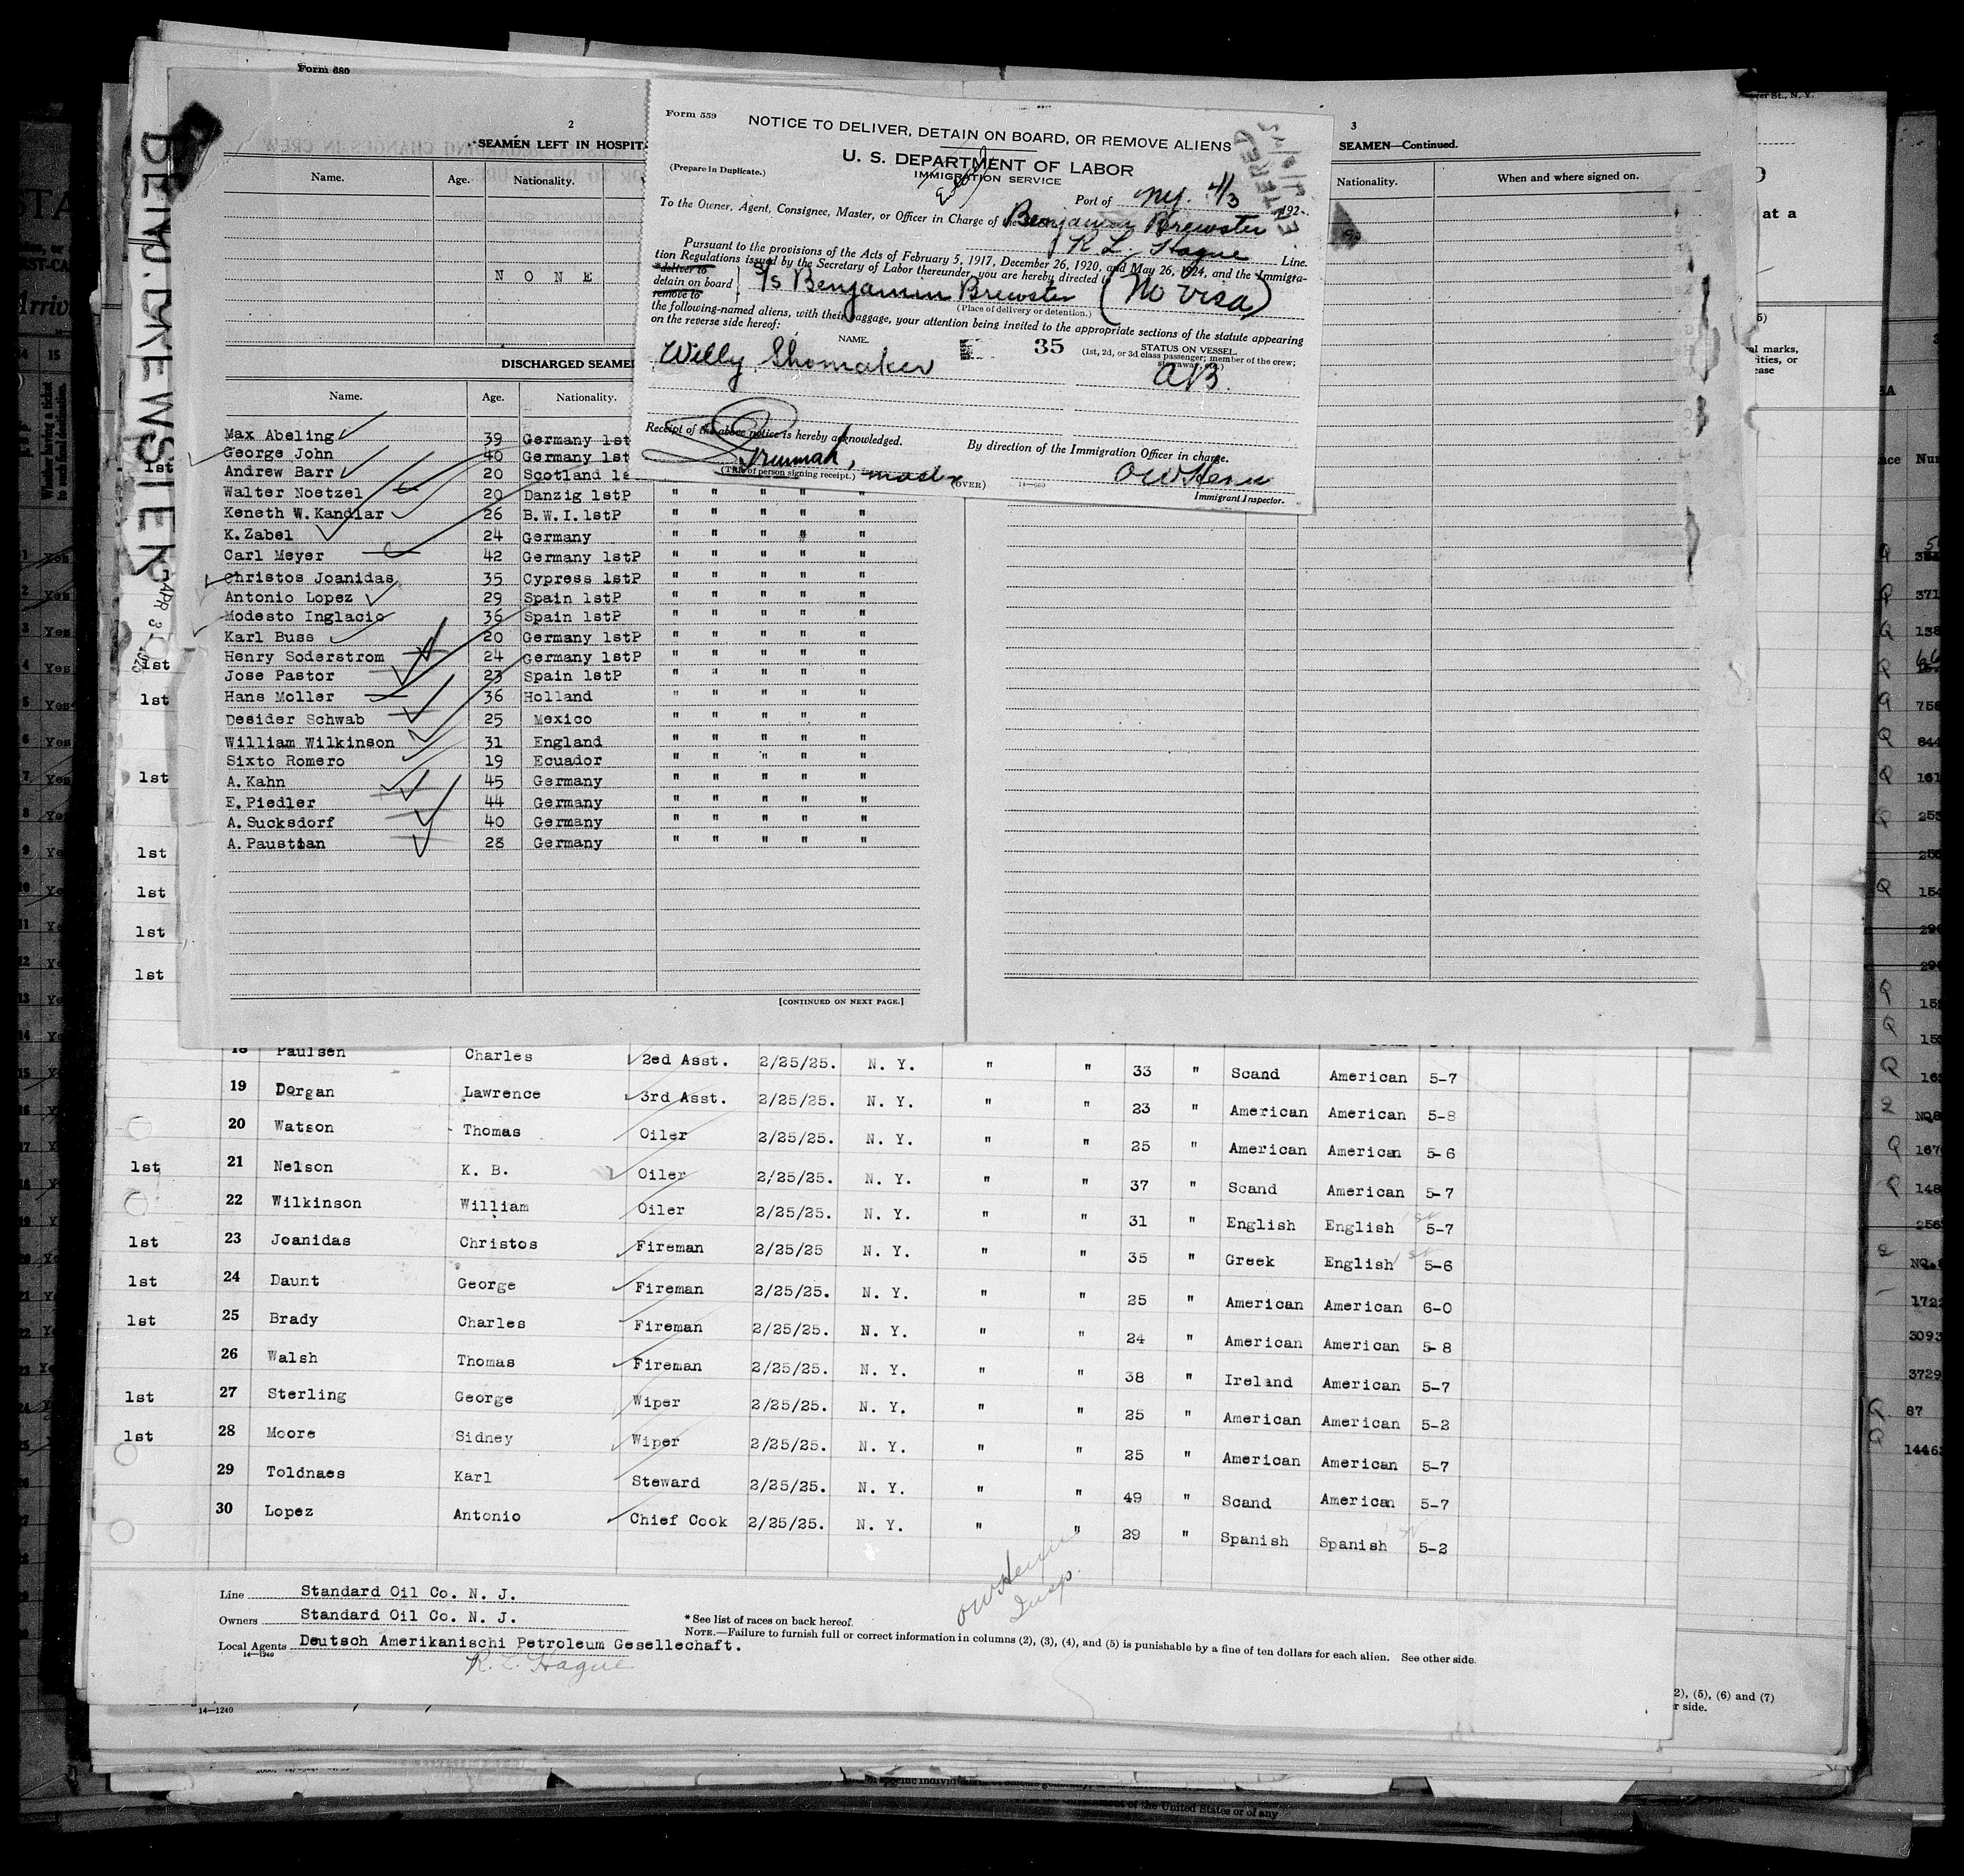 Form 680
2
SEAMEN LEFT IN HOSPIT
Name. Age. Nationality.
N O N E
DISCHARGED SEAME
Name. Age. Nationality.
Max Abeling 39 Germany 1st
1st George John 40 Germany 1st
Andrew Barr 20 Scotland 1s
Walter Noetzel 20 Danzig 1stP " " " " "
Keneth W. Kandlar 26 B.W.I. 1stP " " " " "
K. Zabel 24 Germany " " " " "
Carl Meyer 42 Germany 1stP " " " " "
Christos Joanidas 35 Cypress 1stP " " " " "
Antonio Lopez 29 Spain 1stP " " " " "
Modesto Inglacio 36 Spain 1stP " " " " "
Karl Buss 20 Germany 1stP " " " " "
1st Henry Soderstrom 24 Germany 1stP " " " " "
Jose Pastor 23 Spain 1stP " " " " "
1st Hans Moller 36 Holland " " " " "
Desider Schwab 25 Mexico " " " " "
William Wilkinson 31 England " " " " "
Sixto Romero 19 Ecuador " " " " "
1st A. Kahn 45 Germany " " " " "
E. Piedler 44 Germany " " " " "
A. Sucksdorf 40 Germany " " " " "
A. Paustian 28 Germany " " " " "
1st
1st
1st
1st
[CONTINUED ON NEXT PAGE.]
BENJ. BREWSTER
APR 3 1925
Form 559
NOTICE TO DELIVER, DETAIN ON BOARD, OR REMOVE ALIENS
U. S. DEPARTMENT OF LABOR
IMMIGRATION SERVICE
(Prepare in Duplicate.)
ENTERED
Port of N.Y. 4/3 192
To the Owner, Agent, Consignee, Master, or Officer in Charge of the Benjamin Brewster
R L. Hague Line.
Pursuant to the provisions of the Acts of February 5, 1917, December 26, 1920, and May 26, 1924, and the Immigra-
tion Regulations issued by the Secretary of Labor thereunder, you are hereby directed to
*deliver to
detain on board
remove to
S/S Benjamin Brewster (No visa)
(Place of delivery or detention.)
the following-named aliens, with their baggage, your attention being invited to the appropriate sections of the statute appearing
on the reverse side hereof:
NAME. STATUS ON VESSEL.
(1st, 2d, or 3d class passenger; member of the crew; stowaway, etc.)
Willy Shomaker 35 AB.
Receipt of the above notice is hereby acknowledged.
By direction of the Immigration Officer in charge.
master
(Title of person signing receipt.)
(OVER)
OW Henu
Immigrant Inspector.
3
SEAMEN—Continued.
Nationality. When and where signed on.
18 Paulsen Charles 2ed Asst. 2/25/25. N. Y. " " 33 " Scand American 5-7
19 Dorgan Lawrence 3rd Asst. 2/25/25. N. Y. " " 23 " American American 5-8
20 Watson Thomas Oiler 2/25/25. N. Y. " " 25 " American American 5-6
1st 21 Nelson K. B. Oiler 2/25/25. N. Y. " " 37 " Scand American 5-7
22 Wilkinson William Oiler 2/25/25. N. Y. " " 31 " English English 5-7
1st 23 Joanidas Christos Fireman 2/25/25 N. Y. " " 35 " Greek English 5-6
1st 24 Daunt George Fireman 2/25/25. N. Y. " " 25 " American American 6-0
1st 25 Brady Charles Fireman 2/25/25. N. Y. " " 24 " American American 5-8
26 Walsh Thomas Fireman 2/25/25. N. Y. " " 38 " Ireland American 5-7
1st 27 Sterling George Wiper 2/25/25. N. Y. " " 25 " American American 5-2
1st 28 Moore Sidney Wiper 2/25/25. N. Y. " " 25 " American American 5-7
29 Toldnaes Karl Steward 2/25/25. N. Y. " " 49 " Scand American 5-7
30 Lopez Antonio Chief Cook 2/25/25. N. Y. " " 29 " Spanish Spanish 5-2
OW Henu
Insp.
Line Standard Oil Co. N. J.
Owners Standard Oil Co. N. J.
Local Agents Deutsch Amerikanischi Petroleum Gesellechaft.
14—1240
R. L. Hague
* See list of races on back hereof.
NOTE.—Failure to furnish full or correct information in columns (2), (3), (4), and (5) is punishable by a fine of ten dollars for each alien. See other side.
14—1240
2), (5), (6) and (7)
r side.